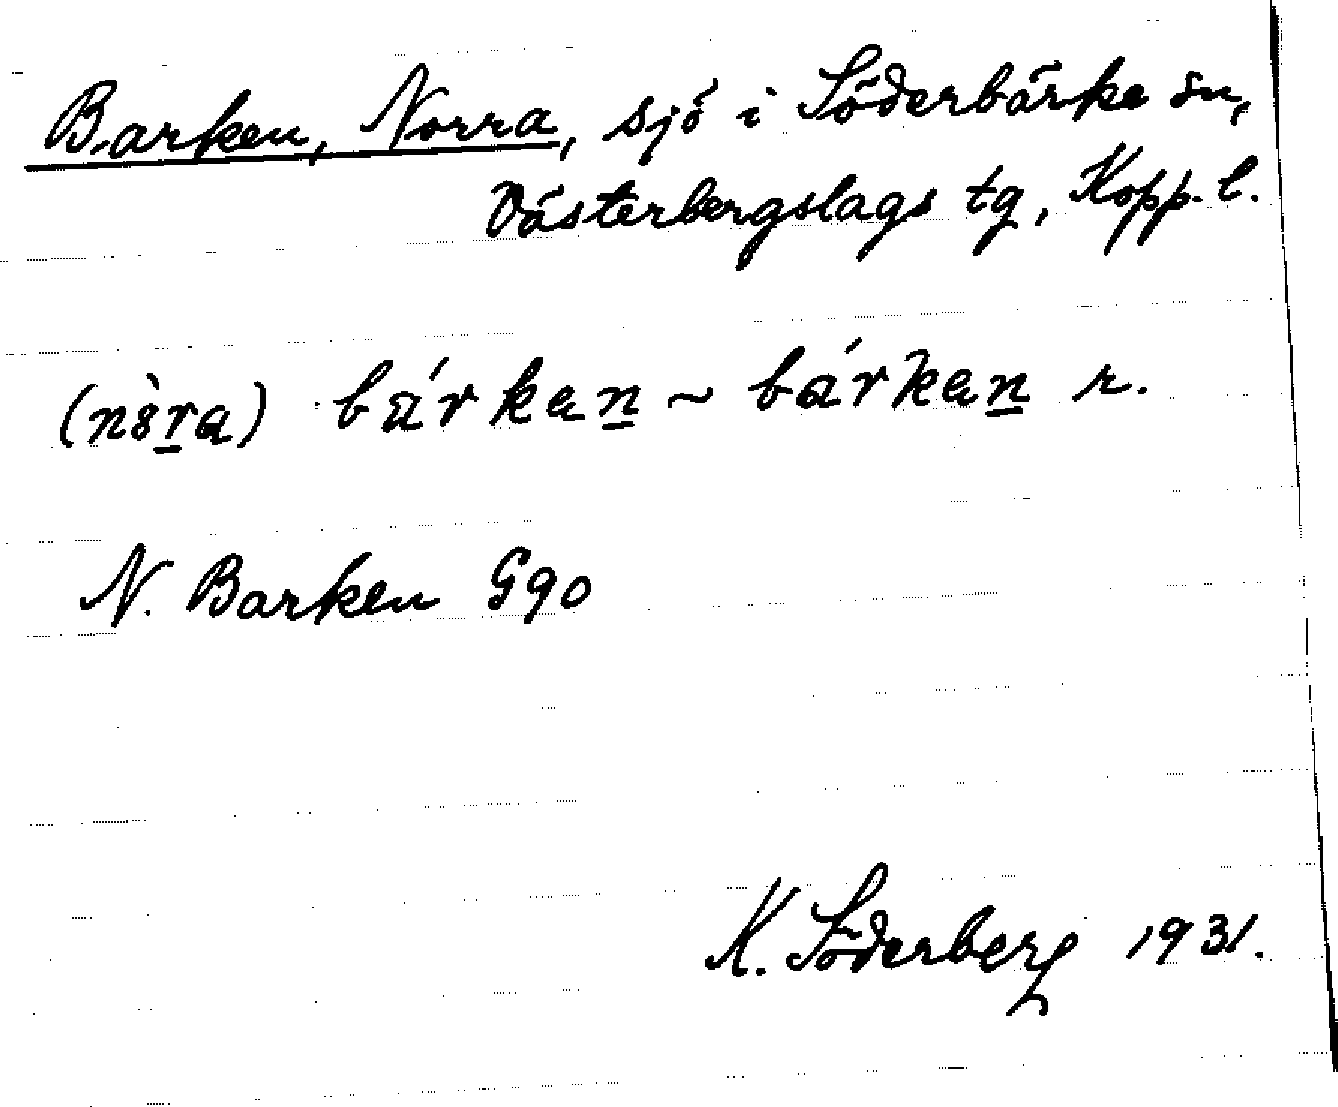 Barken, Norra, sjö i Söderbärke sn,
Västerbergslags tg, Kopp. l.
(nȯ̀ra) bárkan ~ bárkan r.
N. Barken G90
K. Söderberg 1931.